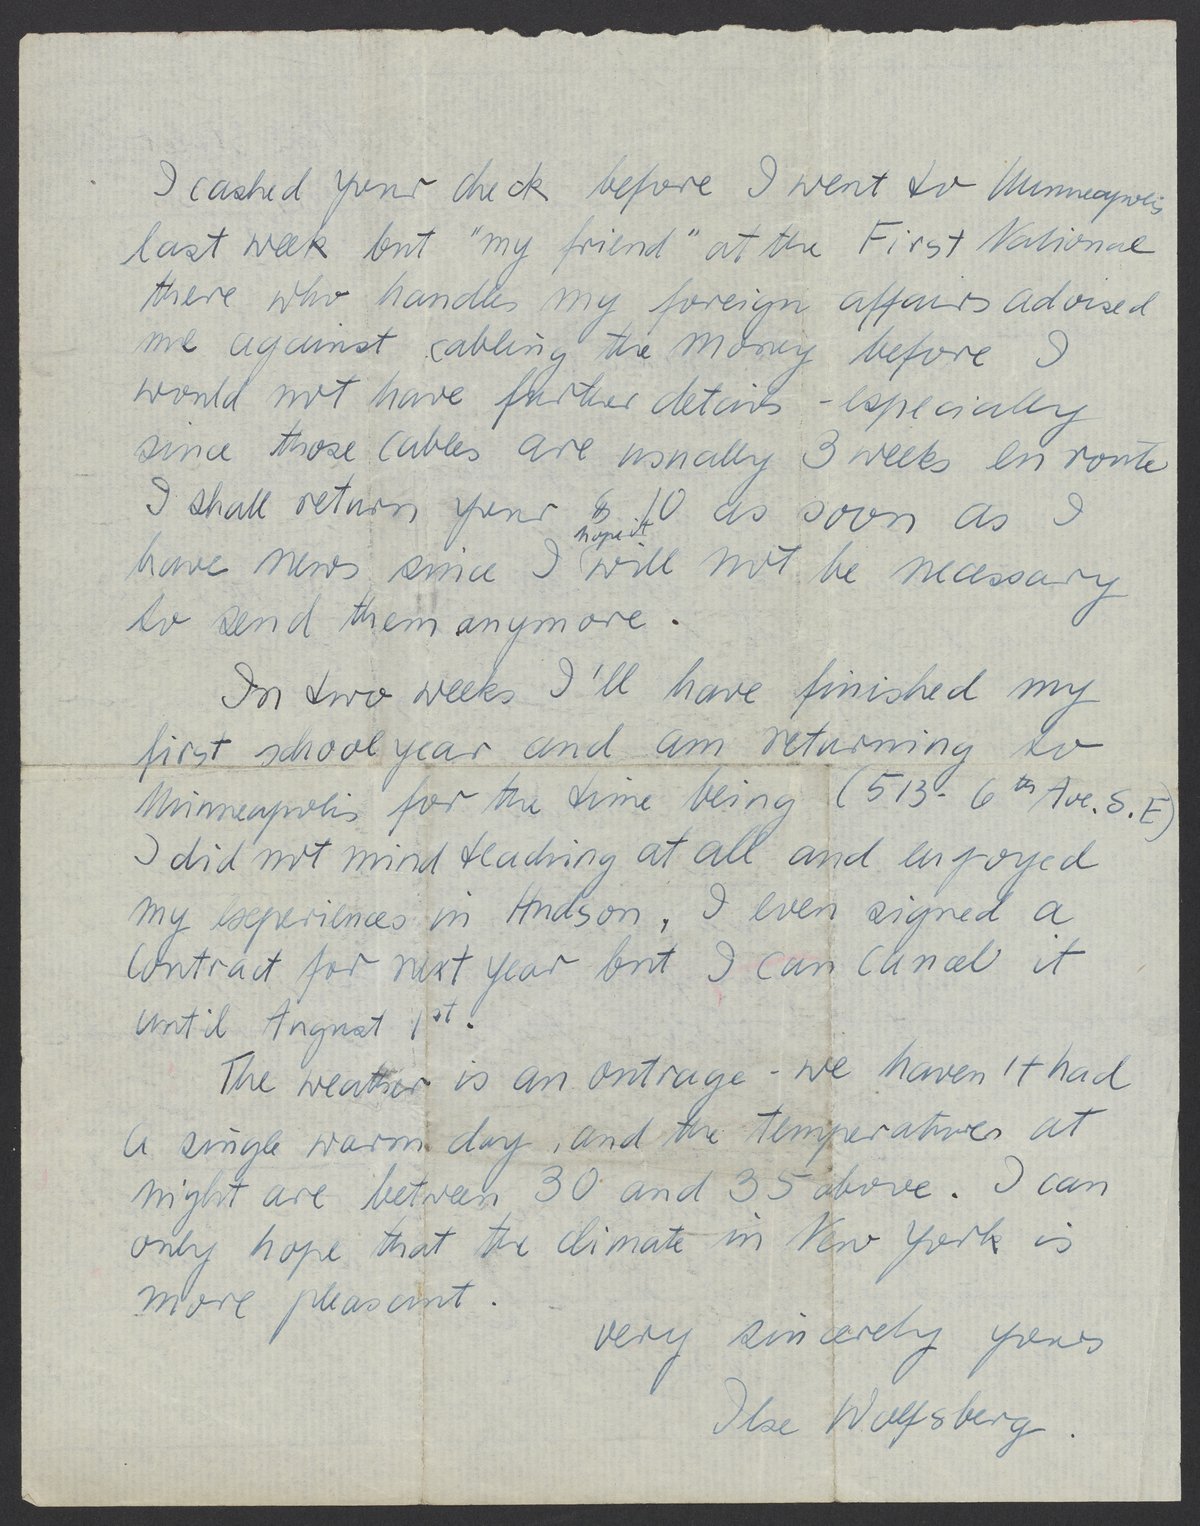 I cashed your check before I went to Minneapolis
last week but "my friend" at the First National
there who handles my foreign affairs advised
me against cabling the money before I
would not have further details - especially
since those cables are usually 3 weeks en route
I shall return your $ 10 as soon as I
hope it
have news since I will not be necessary
to send them anymore.
In two weeks I'll have finished my
first school year and am returning to
Minneapolis for the time being (513- 6th Ave. S.E)
I did not mind teaching at all and enjoyed
my experiences in Hudson, I even signed a
contract for next year but I can cancel it
until August 1st.
The weather is an outrage - we haven't had
a single warm day, and the temperatures at
night are between 30 and 35 above. I can
only hope that the climate in New York is
more pleasant.
very sincerely yours
Ilse Wolfsberg.